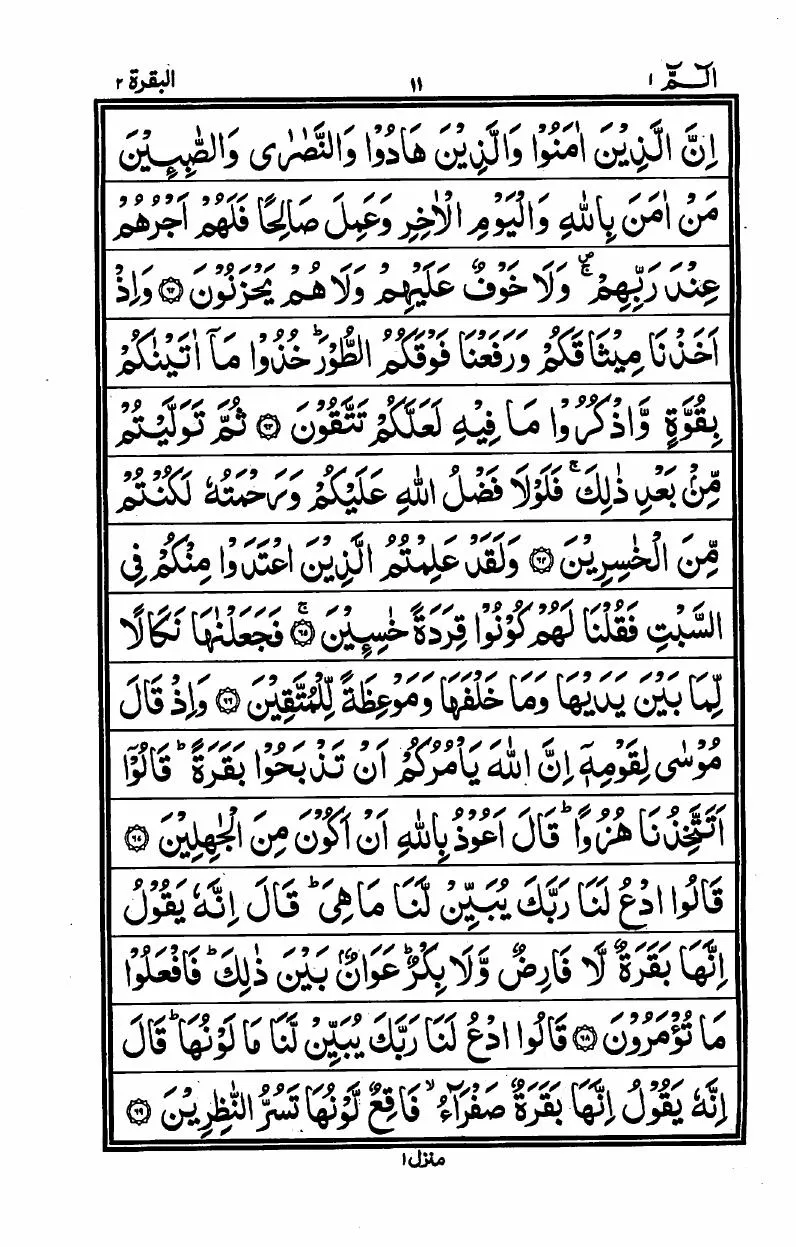 الٓمّٓ ١ ١١ البقرة ٢
اِنَّ الَّذِيْنَ اٰمَنُوْا وَالَّذِيْنَ هَادُوْا وَالنَّصٰرٰى وَالصّٰبِـِٕيْنَ
مَنْ اٰمَنَ بِاللّٰهِ وَالْيَوْمِ الْاٰخِرِ وَعَمِلَ صَالِحًا فَلَهُمْ اَجْرُهُمْ
عِنْدَ رَبِّهِمْ ۚۖ وَلَا خَوْفٌ عَلَيْهِمْ وَلَا هُمْ يَحْزَنُوْنَ ﴿٦٢﴾ وَاِذْ
اَخَذْنَا مِيْثَاقَكُمْ وَرَفَعْنَا فَوْقَكُمُ الطُّوْرَ ؕ خُذُوْا مَاۤ اٰتَيْنٰكُمْ
بِقُوَّةٍ وَّاذْكُرُوْا مَا فِيْهِ لَعَلَّكُمْ تَتَّقُوْنَ ﴿٦٣﴾ ثُمَّ تَوَلَّيْتُمْ
مِّنْۢ بَعْدِ ذٰلِكَ ۚ فَلَوْلَا فَضْلُ اللّٰهِ عَلَيْكُمْ وَرَحْمَتُهٗ لَكُنْتُمْ
مِّنَ الْخٰسِرِيْنَ ﴿٦٤﴾ وَلَقَدْ عَلِمْتُمُ الَّذِيْنَ اعْتَدَوْا مِنْكُمْ فِى
السَّبْتِ فَقُلْنَا لَهُمْ كُوْنُوْا قِرَدَةً خٰسِـِٕيْنَ ﴿٦٥﴾ ۚ فَجَعَلْنٰهَا نَكَالًا
لِّمَا بَيْنَ يَدَيْهَا وَمَا خَلْفَهَا وَمَوْعِظَةً لِّلْمُتَّقِيْنَ ﴿٦٦﴾ وَاِذْ قَالَ
مُوْسٰى لِقَوْمِهٖۤ اِنَّ اللّٰهَ يَاْمُرُكُمْ اَنْ تَذْبَحُوْا بَقَرَةً ؕ قَالُوْۤا
اَتَتَّخِذُنَا هُزُوًا ؕ قَالَ اَعُوْذُ بِاللّٰهِ اَنْ اَكُوْنَ مِنَ الْجٰهِلِيْنَ ﴿٦٧﴾
قَالُوا ادْعُ لَنَا رَبَّكَ يُبَيِّنْ لَّنَا مَا هِىَ ؕ قَالَ اِنَّهٗ يَقُوْلُ
اِنَّهَا بَقَرَةٌ لَّا فَارِضٌ وَّلَا بِكْرٌ ؕ عَوَانٌۢ بَيْنَ ذٰلِكَ ؕ فَافْعَلُوْا
مَا تُؤْمَرُوْنَ ﴿٦٨﴾ قَالُوا ادْعُ لَنَا رَبَّكَ يُبَيِّنْ لَّنَا مَا لَوْنُهَا ؕ قَالَ
اِنَّهٗ يَقُوْلُ اِنَّهَا بَقَرَةٌ صَفْرَآءُ ۙ فَاقِعٌ لَّوْنُهَا تَسُرُّ النّٰظِرِيْنَ ﴿٦٩﴾
منزل ١